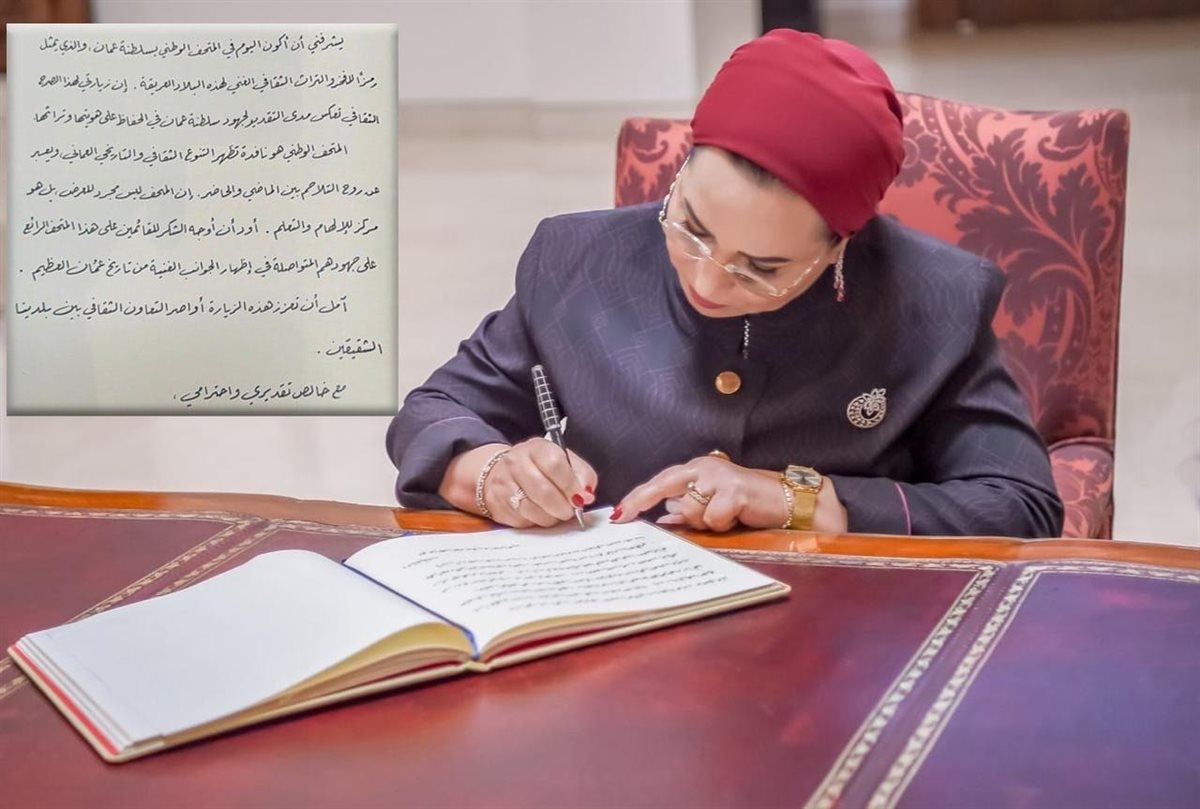 يشرفني أن أكون اليوم في المتحف الوطني بسلطنة عمان، والذي يمثل
رمزاً للفخر والتراث الثقافي الغني لهذه البلاد العريقة. إن زيارتي لهذا الصرح
الثقافي تعكس مدى التقدير لجهود سلطنة عمان في الحفاظ على هويتها وتراثها.
المتحف الوطني هو نافذة تظهر التنوع الثقافي والتاريخي العماني، ويعبر
عن روح التلاحم بين الماضي والحاضر. إن المتحف ليس مجرد للعرض، بل هو
مركز للإلهام والتعلم. أود أن أوجه الشكر للقائمين على هذا المتحف الرائع
على جهودهم المتواصلة في إظهار الجوانب الغنية من تاريخ عُمان العظيم.
آمل أن تعزز هذه الزيارة أواصر التعاون الثقافي بين بلدينا
الشقيقين.
مع خالص تقديري واحترامي،